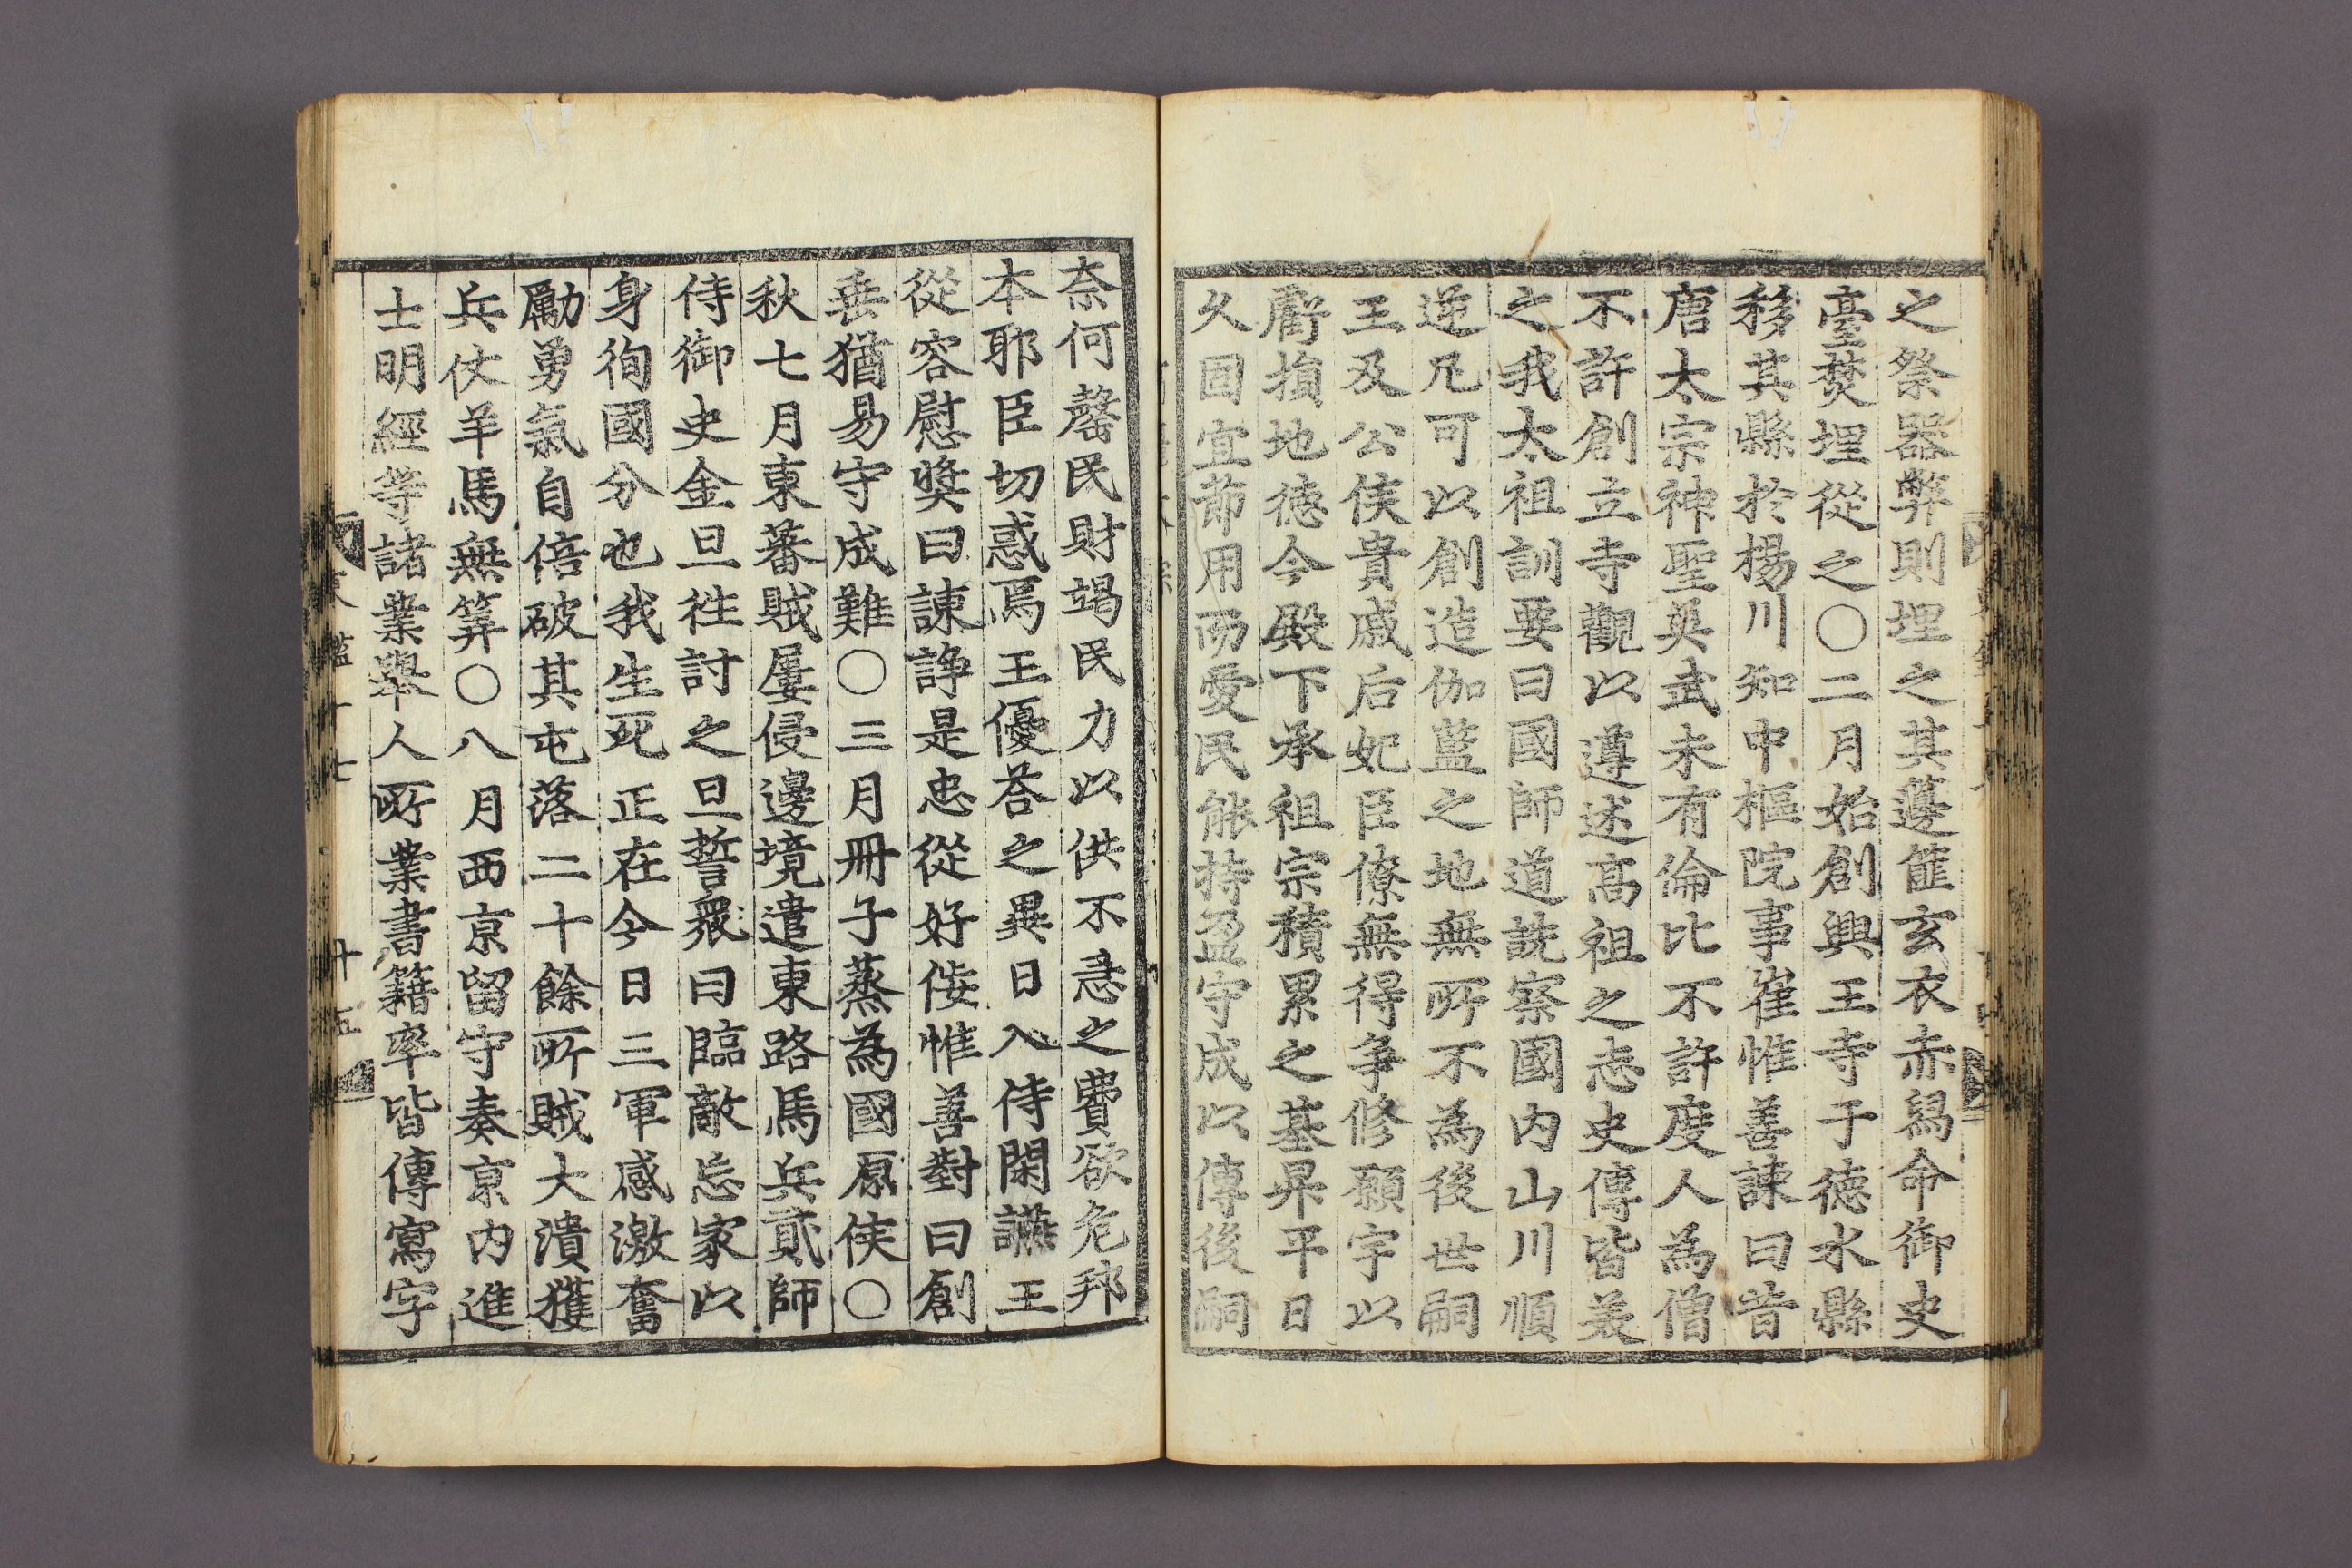 之祭器弊則埋之其籩篚玄衣赤舄命御史
臺焚埋從之〇二月始創興王寺于德水縣
移其縣於楊川知中樞院事崔惟善諫曰昔
唐太宗神聖英武未有倫比不許度人為僧
不許創立寺觀以遵述高祖之志史傳皆羙
之我太祖訓要曰國師道詵察國内山川順
逆凡可以創造伽藍之地無所不為後世嗣
王及公侯貴戚后妃臣僚無得争修願宇以
虧損地德今殿下承祖宗積累之基昇平日
久固宜節用而愛民能持盈守成以傳後嗣
奈何罄民財竭民力以供不急之費欲危邦
本耶臣切惑焉王優荅之異日入侍閑讌王
從容慰奬曰諫諍是忠從好侫惟善對曰創
垂猶易守成難〇三月冊子蒸為國原侯〇
秋七月東蕃賊屢侵邊境遣東路馬兵貳師
侍御史金旦徃討之旦誓衆曰臨敵忘家以
身徇國分也我生死正在今日三軍感激奮
勵勇氣自倍破其屯落二十餘所賊大潰獲
兵仗羊馬無筭〇八月西京留守奏京内進
士明經等諸業舉人所業書籍率皆傳寫字
十七
十五